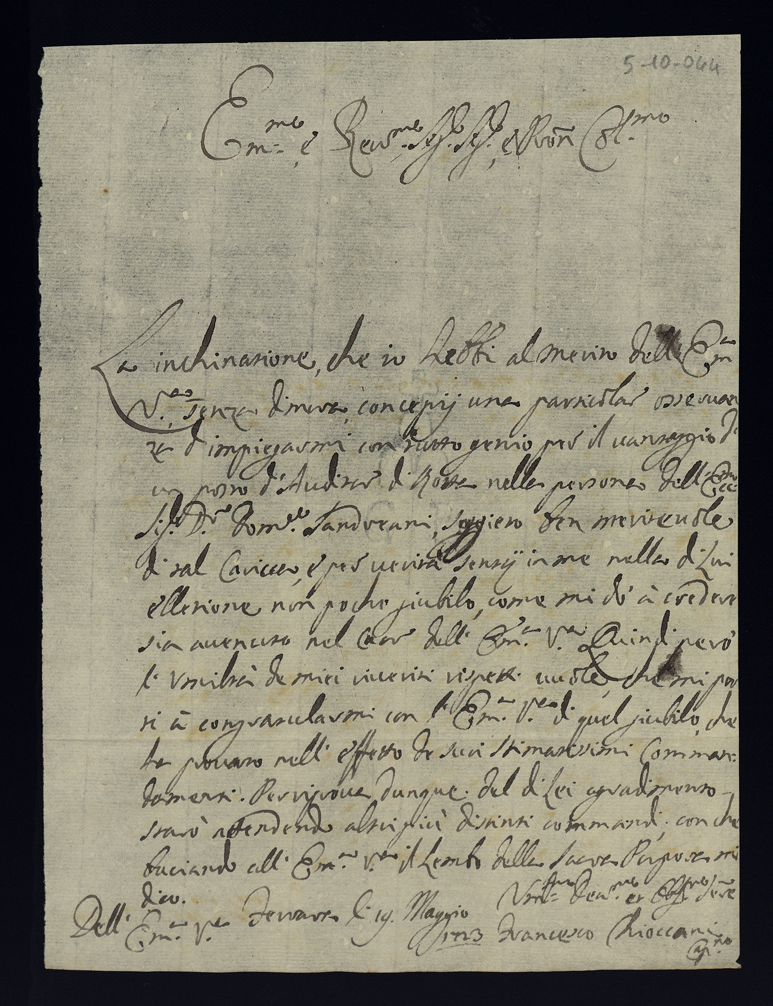 5-10-044
Em.mo, e Rev.mo Sig.r Sig.r, e Pron Col.mo
La inchinazione, che io hebbi al merito della Em.a
V.a, senza dimora, concepij una particolar osservan
za d'impiegarmi con tutto genio per il vantaggio d'
un posto d'Auditor di Rota nella persona dell'
Sig.r D.r Dom.co, soggieto ben meritevole
di tal Caricca, e per verità sentij in me nella di Lui
ellezione non poche jiubilo, come mi dò à credere
sia avenuto nel Cuor dell' Em.a V.a Quindi però
l'umiltà de miei riveriti rispetti vuole, che mi por
ti à congratularmi con l'Em.a V.a di quel jiubilo, che
ha provato nell' effetto de suoi stimatissimi Comman:
damenti. Per riprova dunque del di Lei agradimento
starò attendendo altri più distinti commandi; con che
baciando all' Em.a V.a il Lembo della Sacra Porpora mi
dico.
Dell' Em.a V.a Ferrara li 19. Maggio 1723
Um.mo Dev.mo et Obb.mo Ser.re
Francesco Chioccani
Cap.no